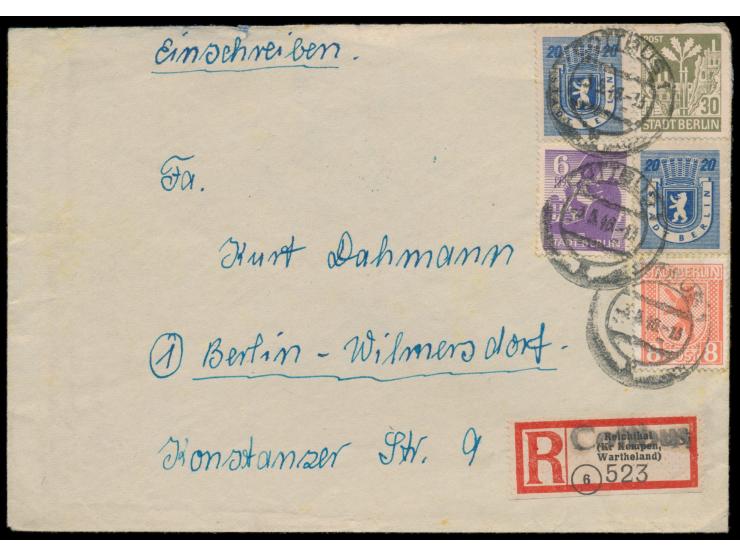 Einschreiben.
20 20
STADT BERLIN
POST
30
STADT BERLIN
COTTBUS 1
Fa.
6
STADT BERLIN
20 20
STADT BERLIN
COTTBUS
Kurt Dahmann
STADT BERLIN
8 POST 8
① Berlin-Wilmersdorf.
Konstanzer Str. 9
R
Cottbus
Reichthal
(Kr Kempen,
Wartheland)
6 523